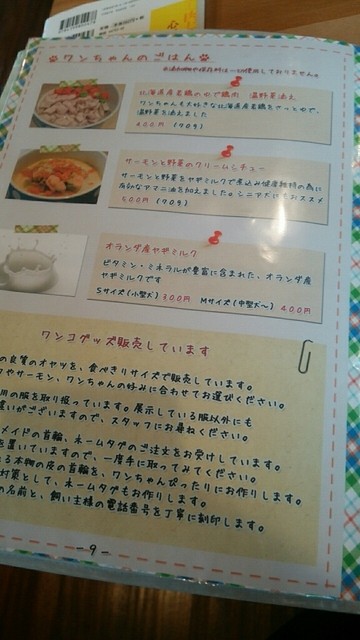 ワンちゃんのごはん
北海道産若鶏のゆで鶏肉 温野菜添え
ワンちゃんも大好きな北海道産若鶏をさっとゆで、
温野菜を添えました
400円 (90g)
サーモンと野菜のクリームシチュー
サーモンと野菜をヤギミルクで煮込み健康維持の為に
アマニ油を加えました。シニア犬にもおススメ
500円 (90g)
オランダ産ヤギミルク
ビタミン・ミネラルが豊富に含まれた、オランダ産
ヤギミルクです
Sサイズ(小型犬)300円 Mサイズ(中型犬〜) 400円
ワンコグッズ販売しています
の良質のオヤツを、食べきりサイズで販売しています。
やサーモン、ワンちゃんの好みに合わせてお選びください。
用の服を取り扱っています。展示している服以外にも
違いがございますので、スタッフにお尋ねください。
メイドの首輪、ネームタグのご注文をお受けしています。
を置いていますので、一度手に取ってみてください。
る本物の皮の首輪を、ワンちゃんぴったりにお作りします。
対策として、ネームタグもお作りします。
の名前と、飼い主様の電話番号を丁寧に刻印します。
-9-